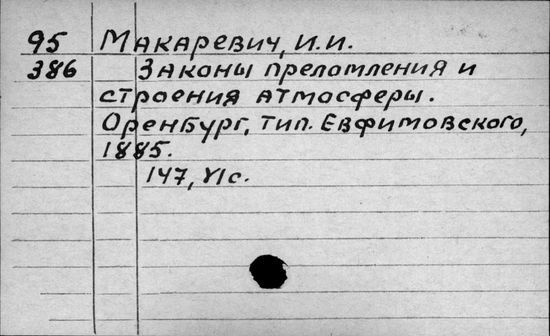 95 Макаревич, И.И.
386 Законы преломления и
строения атмосферы.
Оренбург, тип. Евфимовского,
1885.
147, VI с.